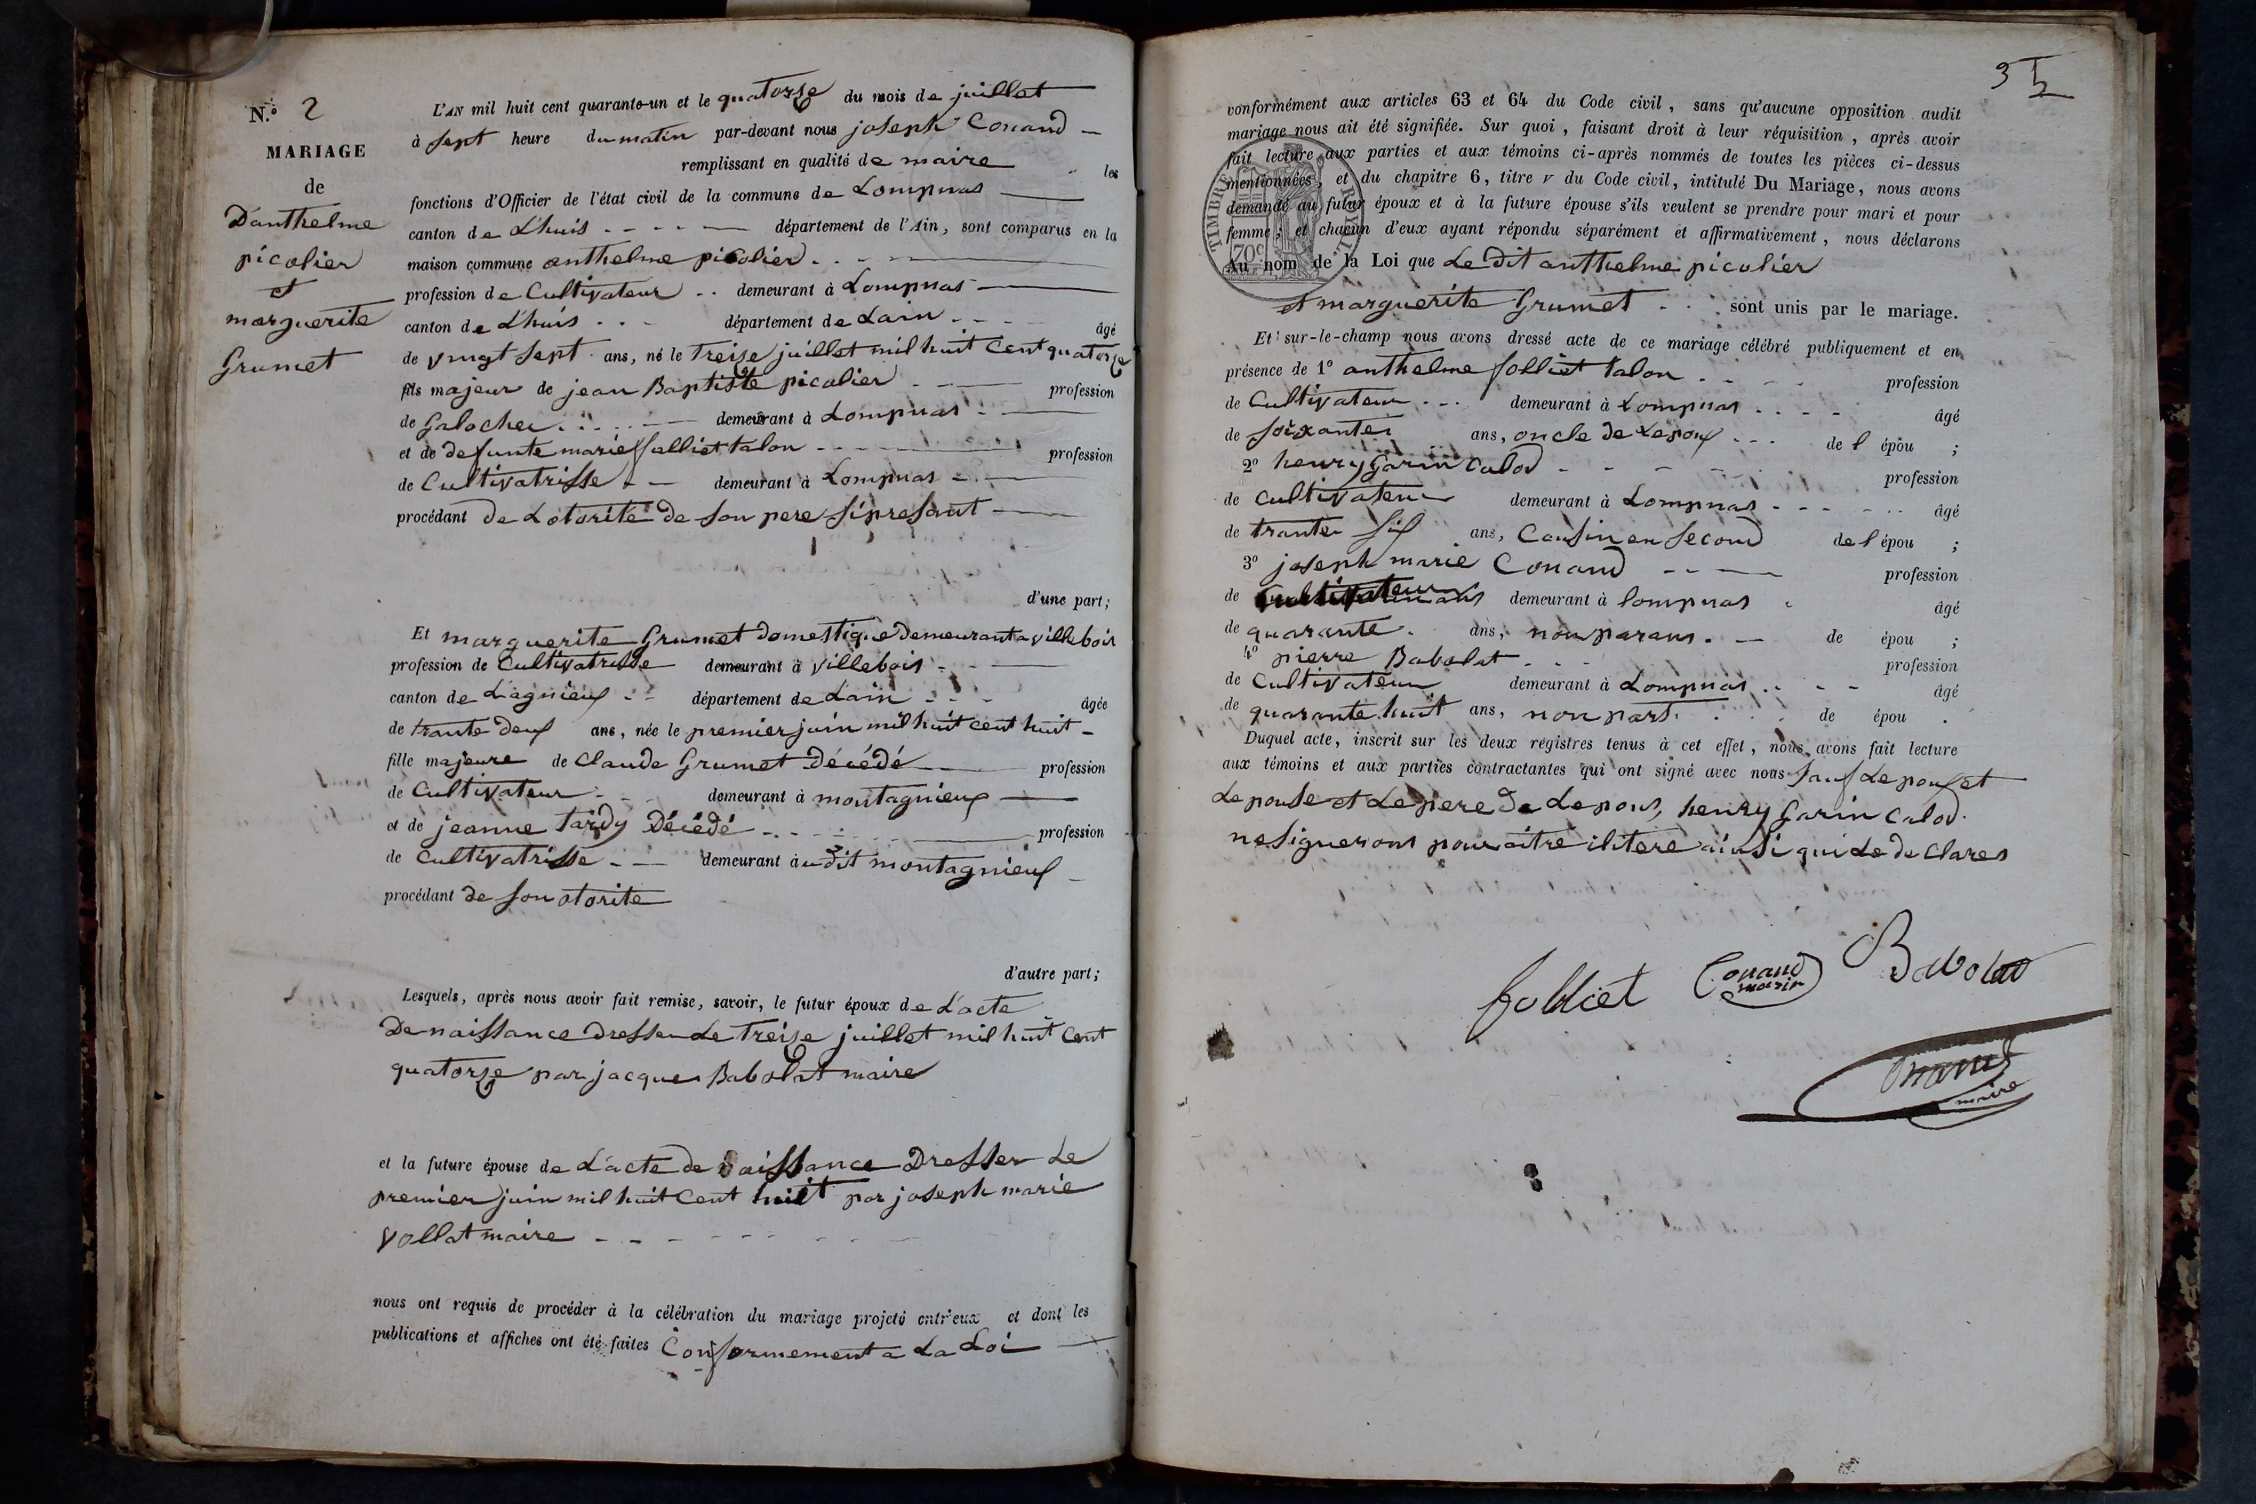 N.o 2
MARIAGE
de
D'anthelme
picolier
et
marguerite
Grumet
L'AN mil huit cent quarante-un et le quatorze du mois de juillet
à sept heure du matin par-devant nous joseph Conand
remplissant en qualité de maire les
fonctions d'Officier de l'état civil de la commune de Lompnas
canton de L'huis département de l'Ain, sont comparus en la
maison commune anthelme picolier
profession de Cultivateur demeurant à Lompnas
canton de L'huis département de Lain âgé
de vingt sept ans, né le treize juillet mil huit cent quatorze
fils majeur de jean Baptiste picolier profession
de Galocher demeurant à Lompnas
et de defunte marie folliet talon profession
de Cultivatrisse demeurant à Lompnas
procédant de Lotorite de son pere si present
d'une part;
Et marguerite Grumet domestique demeurant a villebois
profession de Cultivatrisse demeurant à villebois
canton de Lagnieux département de Lain âgée
de trante deux ans, née le premier juin mil huit cent huit
fille majeure de Claude Grumet Décédé profession
de Cultivateur demeurant à montagnieux
et de jeanne tardy Décédé profession
de Cultivatrisse demeurant à udit montagnieux
procédant de son otorite
d'autre part;
Lesquels, après nous avoir fait remise, savoir, le futur époux de L'acte
De naissance dresser Le treize juillet mil huit Cent
quatorze par jacques Babolat maire
et la future épouse de L'acte de naissance Dresser Le
premier juin mil huit Cent huit par joseph marie
vollat maire
nous ont requis de procéder à la célébration du mariage projeté entr'eux et dont les
publications et affiches ont été faites Conformement a La Loi
35
conformément aux articles 63 et 64 du Code civil, sans qu'aucune opposition audit
mariage nous ait été signifiée. Sur quoi, faisant droit à leur réquisition, après avoir
fait lecture aux parties et aux témoins ci-après nommés de toutes les pièces ci-dessus
mentionnées, et du chapitre 6, titre v du Code civil, intitulé Du Mariage, nous avons
demandé au futur époux et à la future épouse s'ils veulent se prendre pour mari et pour
femme; et chacun d'eux ayant répondu séparément et affirmativement, nous déclarons
Au nom de la Loi que Le dit anthelme picolier
TIMBRE ROYAL
70c
et marguerite Grumet sont unis par le mariage.
Et sur-le-champ nous avons dressé acte de ce mariage célébré publiquement et en
présence de 1o anthelme folliet talon profession
de Cultivateur demeurant à Lompnas âgé
de soixante ans, oncle de Lepoux de l épou ;
2o henry Garin Calod profession
de cultivateur demeurant à Lompnas âgé
de trante six ans, Cousin en second de l épou ;
3o joseph marie Conand profession
de Cultivateur demeurant à lompnas âgé
de quarante ans, non parans de épou ;
4o pierre Babolat profession
de Cultivateur demeurant à Lompnas âgé
de quarante huit ans, non part de épou .
Duquel acte, inscrit sur les deux régistres tenus à cet effet, nous avons fait lecture
aux témoins et aux parties contractantes qui ont signé avec nous sauf Lepoux et
Lepouse et Le pere de Lepous, henry Garin Calod
ne signerons pour aitre ilitere ainsi qui Le de Clares
folliet Conand marie Babolat
Conand
maire